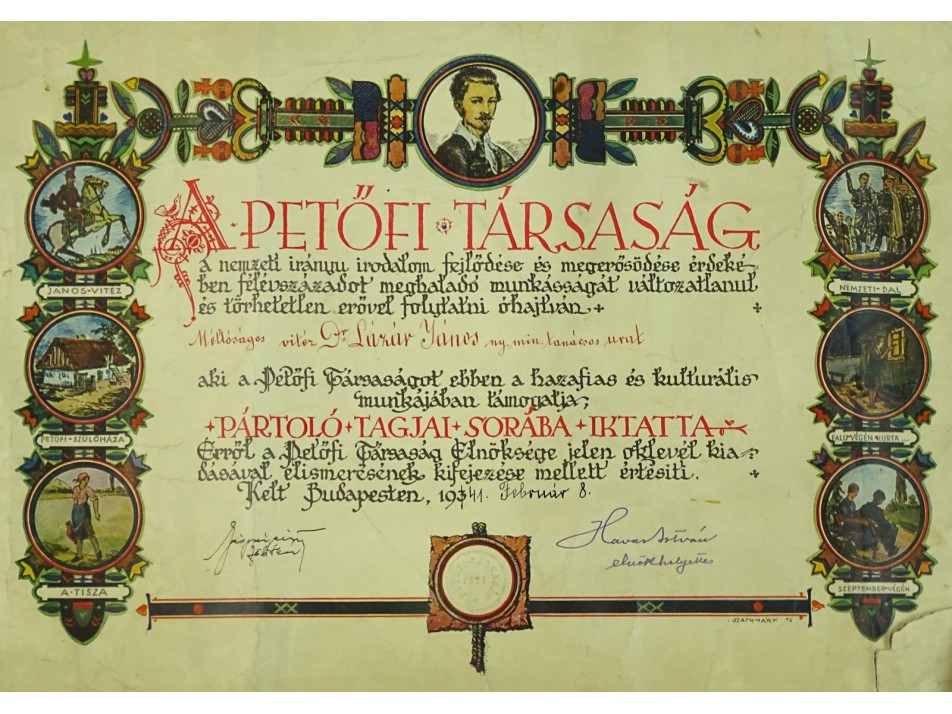 A · PETŐFI · TÁRSASÁG
a nemzeti irányu irodalom fejlődése és megerősödése érdeké-
ben félévszázadot meghaladó munkásságát változatlanul
és törhetetlen erővel folytatni óhajtván
Méltóságos vitéz Dr Lázár János ny. min. tanácsos urat
aki a Petőfi Társaságot ebben a hazafias és kulturális
munkájában támogatja,
PÁRTOLÓ TAGJAI SORÁBA IKTATTA
Erről a Petőfi Társaság Elnöksége jelen oklevél kia-
dásával elismerésének kifejezése mellett értesiti.
Kelt Budapesten, 1941. Február 8.
Havas István
elnökhelyettes
JÁNOS-VITÉZ
PETŐFI-SZÜLŐHÁZA
A-TISZA
NEMZETI-DAL
FALU-VÉGÉN KURTA...
SZEPTEMBER-VÉGÉN